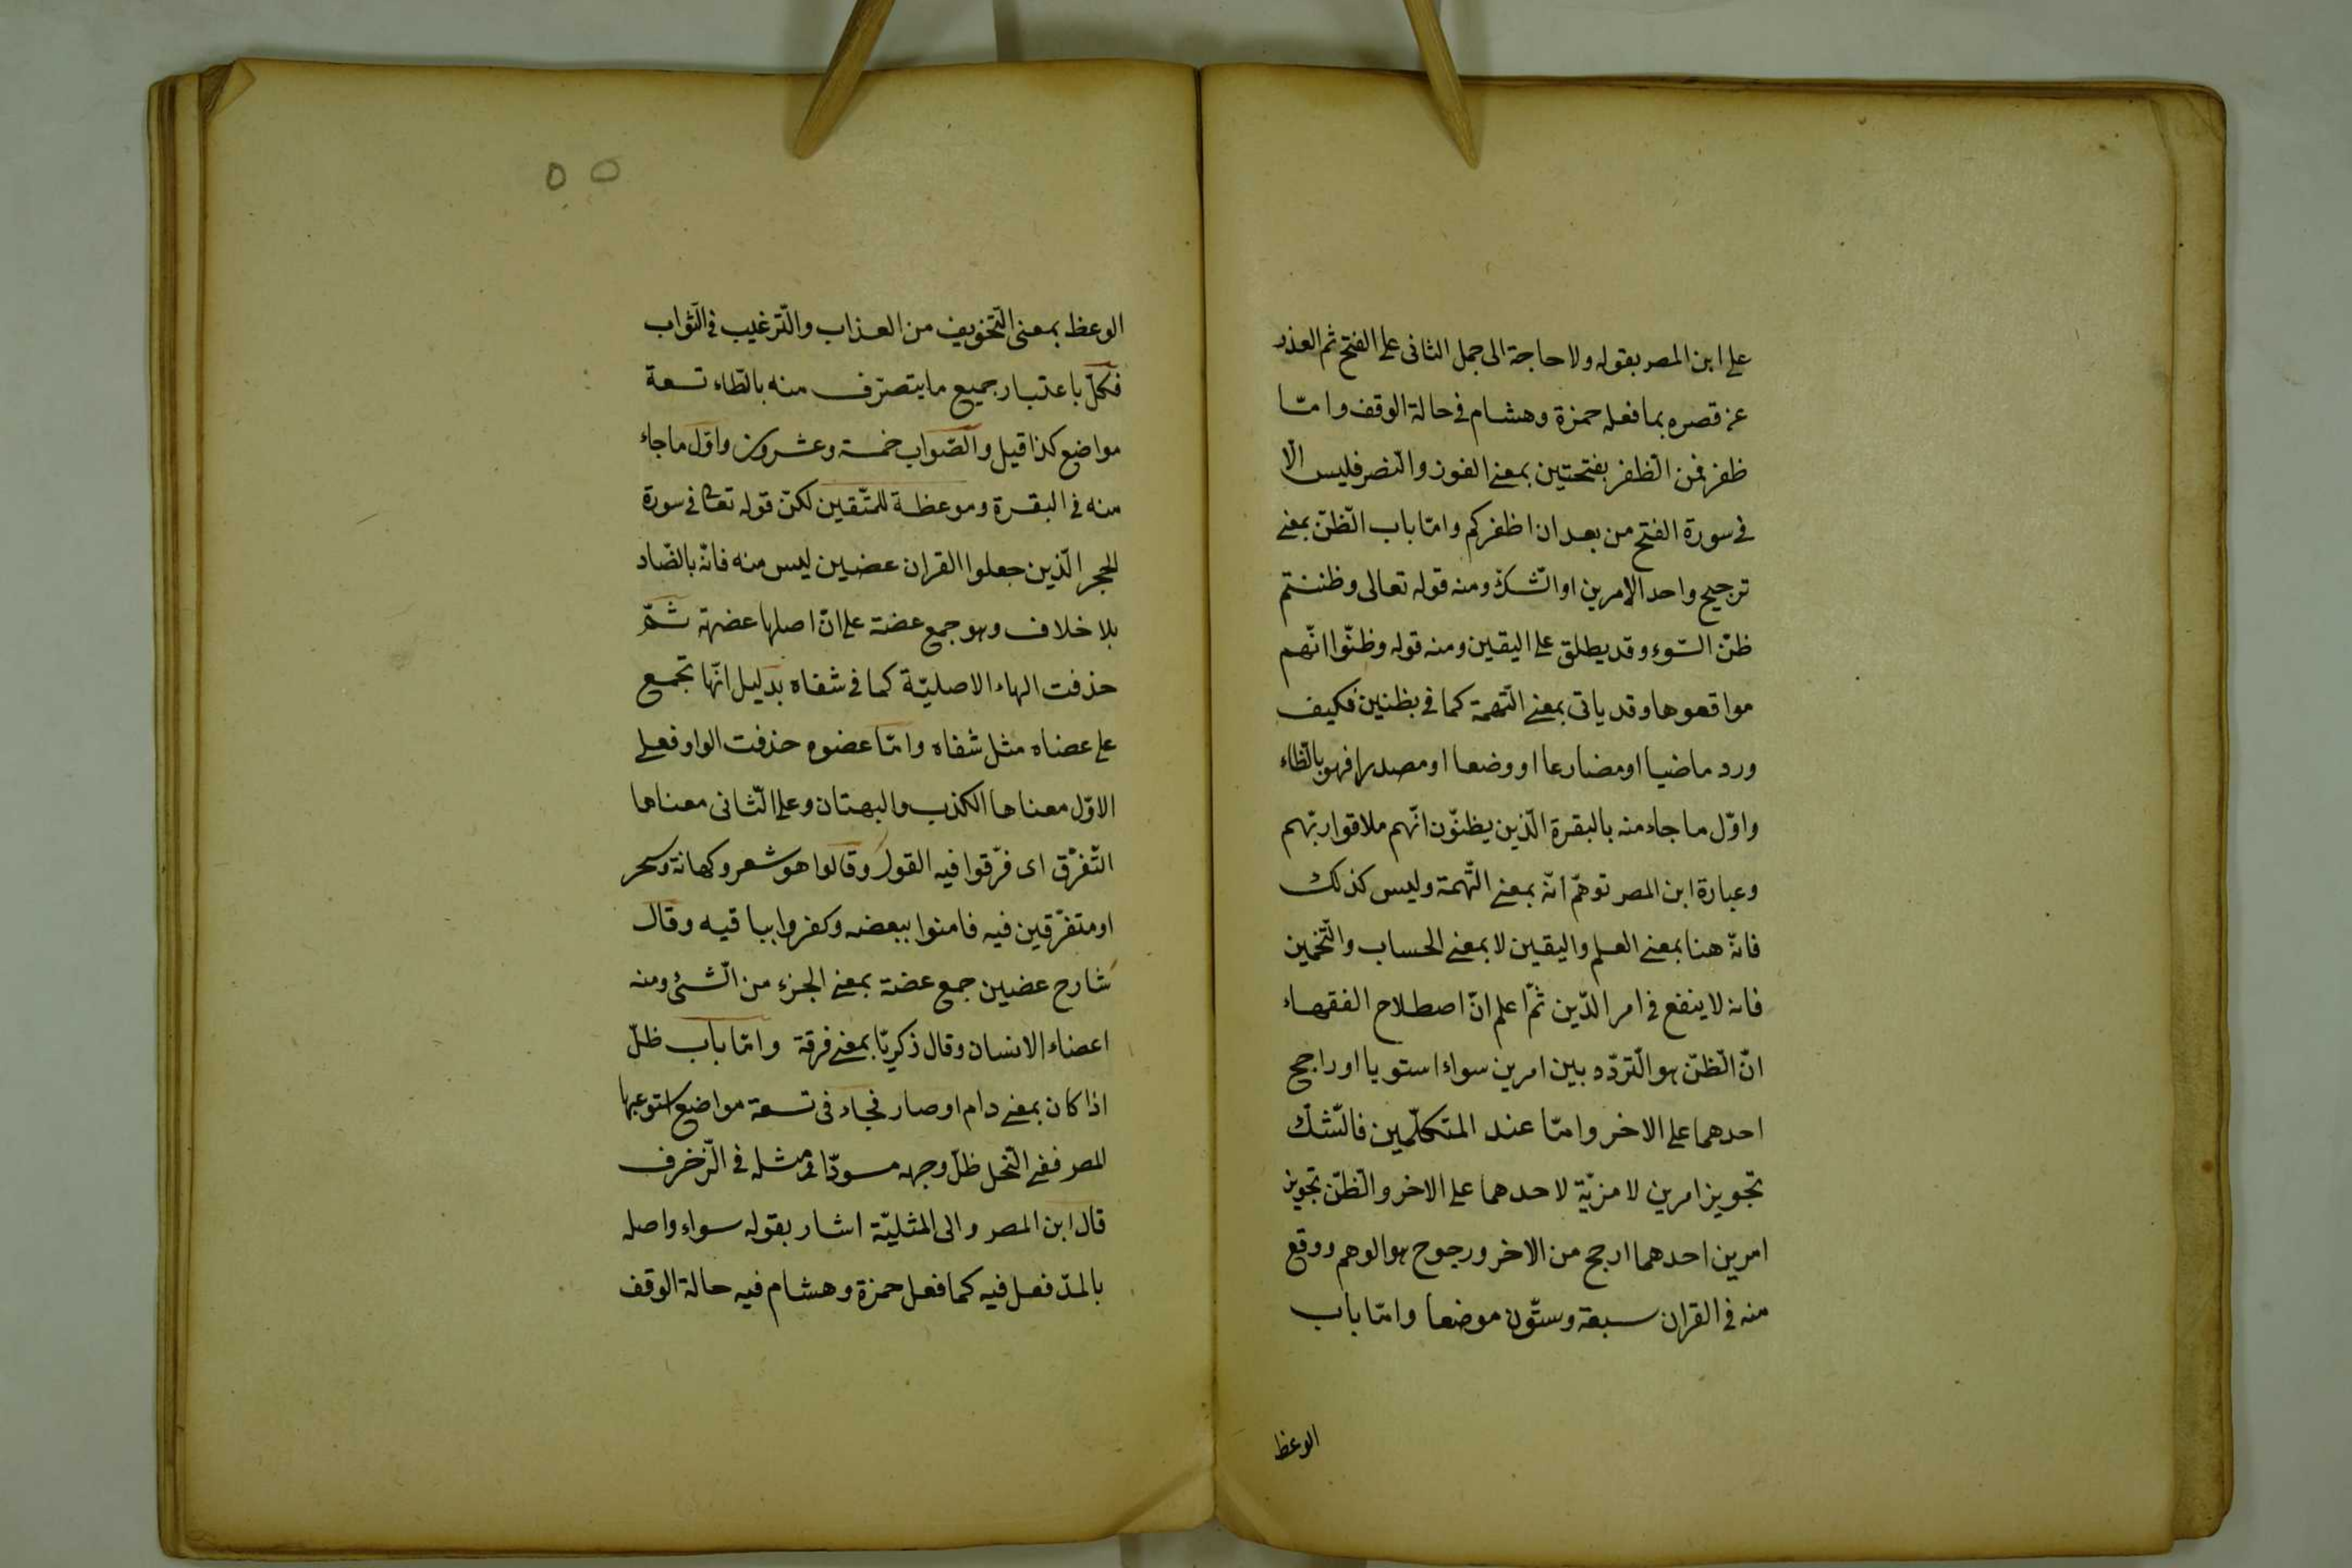 على ابن المصر بقوله ولا حاجة الى حمل الثانى على الفتح ثم العذر
عن قصره بما فعله حمزة وهشام فى حالة الوقف وامّا
ظفر فمن الظفر بفتحتين بمعنى الفوز والنصر فليس الّا
فى سورة الفتح من بعد ان اظفركم وامّا باب الظّنّ بمعنى
ترجيح واحد الامرين او الشّكّ ومنه قوله تعالى وظننتم
ظنّ السّوء وقد يطلق على اليقين ومنه قوله وظنّوا انّهم
مواقعوها وقد ياتى بمعنى التّهمة كما فى بظنين فكيف
ورد ماضيا او مضارعا او وضعا او مصدرا فهو بالظّاء
واوّل ما جاء منه بالبقرة الّذين يظنّون انّهم ملاقوا ربّهم
وعبارة ابن المصر توهّم انّه بمعنى التّهمة وليس كذلك
فانّه هنا بمعنى العلم واليقين لا بمعنى الحساب والتّخمين
فانه لا ينفع فى امر الدّين ثمّ اعلم انّ اصطلاح الفقهاء
انّ الظّنّ هو التّردّد بين امرين سواء استويا او راجح
احدهما على الاخر وامّا عند المتكلّمين فالشّكّ
تجويز امرين لا مزيّة لاحدهما على الاخر والظّنّ تجويز
امرين احدهما ارجح من الاخر ورجوح هو الوهم ووقع
منه فى القران سبعة وستّون موضعا وامّا باب
الوعظ
٥٥
الوعظ بمعنى التّخويف من العذاب والتّرغيب فى الثّواب
فكلّ باعتبار جميع ما يتصرّف منه بالظاء تسعة
مواضع كذا قيل والصّواب خمسة وعشرون واوّل ما جاء
منه فى البقرة وموعظة للمتّقين لكنّ قوله تعالى فى سورة
الحجر الّذين جعلوا القران عضين ليس منه فانّه بالضّاد
بلا خلاف وهو جمع عضة على انّ اصلها عضهة ثمّ
حذفت الهاء الاصليّة كما فى شفاه بدليل انّها تجمع
على عضاه مثل شفاه وامّا عضوه حذفت الواو فعلى
الاوّل معناها الكذب والبهتان وعلى الثّانى معناها
التّفرّق اى فرّقوا فيه القول وقالوا هو شعر وكهانة وسحر
او متفرّقين فيه فامنوا ببعضه وكفروا بباقيه وقال
شارح عضين جمع عضة بمعنى الجزء من الشّئ ومنه
اعضاء الانسان وقال زكريّا بمعنى فرقة وامّا باب ظلّ
اذا كان بمعنى دام او صار فجاء فى تسعة مواضع استوعبها
المصر ففى النّحل ظلّ وجهه مسودّا مثله فى الزّخرف
قال ابن المصر والى المثليّة اشار بقوله سواء واصله
بالمدّ فعل فيه كما فعل حمزة وهشام فيه حالة الوقف